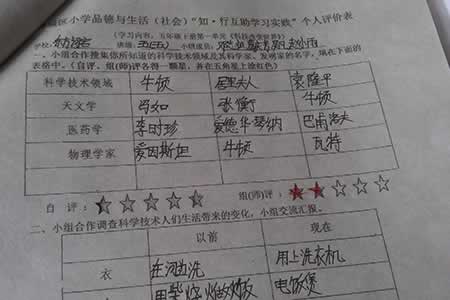 区小学品德与生活（社会）“知·行互助学习实践”个人评价表
（学习内容：五年级下册第一单元《科技改变世界》）
学校： 班级：五（五） 小组成员：
一、小组合作搜集你所知道的科学技术领域及其科学家、发明家的名字，填在下面的
表格中。（自评、组（师）评各得一颗星，并在五角星上涂红色）
科学技术领域 牛顿 居里夫人 袁隆平
天文学 张衡 牛顿
医药学 李时珍 爱德华·琴纳 巴甫洛夫
物理学家 爱因斯坦 牛顿 瓦特
自 评： 组（师）评：
二、小组合作调查科学技术人们生活带来的变化，小组交流汇报。
以前 现在
衣 在河边洗 用上洗衣机
用柴 电饭煲